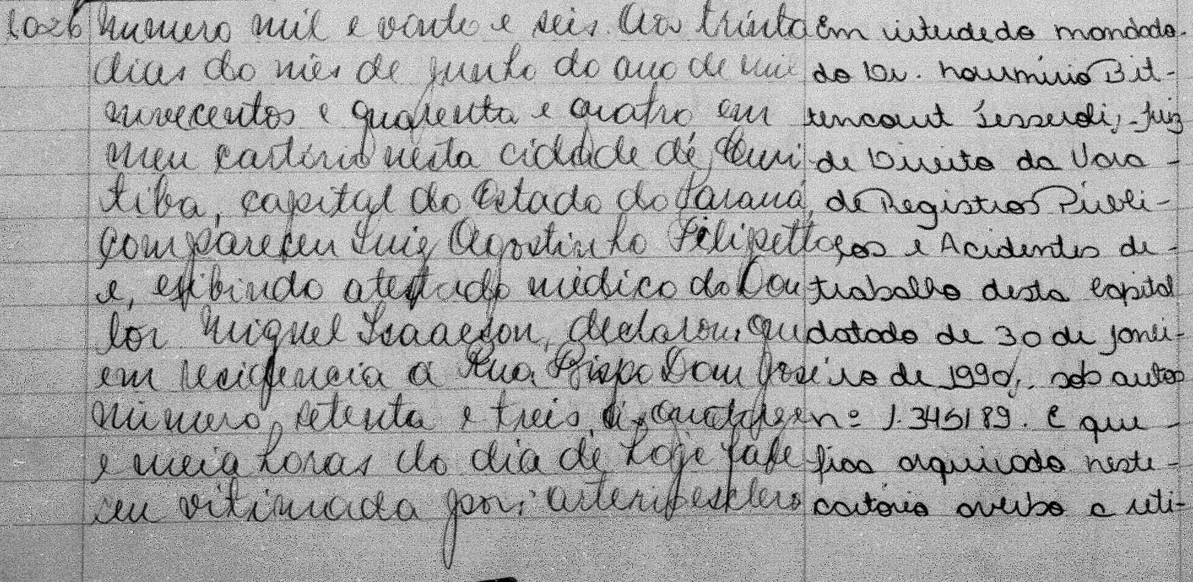 1026
Numero mil e vinte e seis. Aos trinta
dias do mês de junho do ano de mil
novecentos e quarenta e quatro em
meu cartório nesta cidade de Curi
tiba, capital do Estado do Paraná,
compareceu Luiz Agostinho Filipetto
e, exibindo atestado médico do Dou
tor Miguel Isaacson, declarou, que
em residencia a Rua Bispo Dom José
número, setenta e treis, ás quatorze
e meia horas do dia de hoje fale
ceu vitimada por: arterioesclero
Em virtude do mandado
do Dr. Bit-
tencourt Juiz
de Direito da Vara
de Registros Públi-
cos e Acidentes de
trabalho desta Capital
datado de 30 de janei-
ro de 1990, sob autos
nº 1.345/89. E que
fica arquivado neste
cartório averbo a reti-